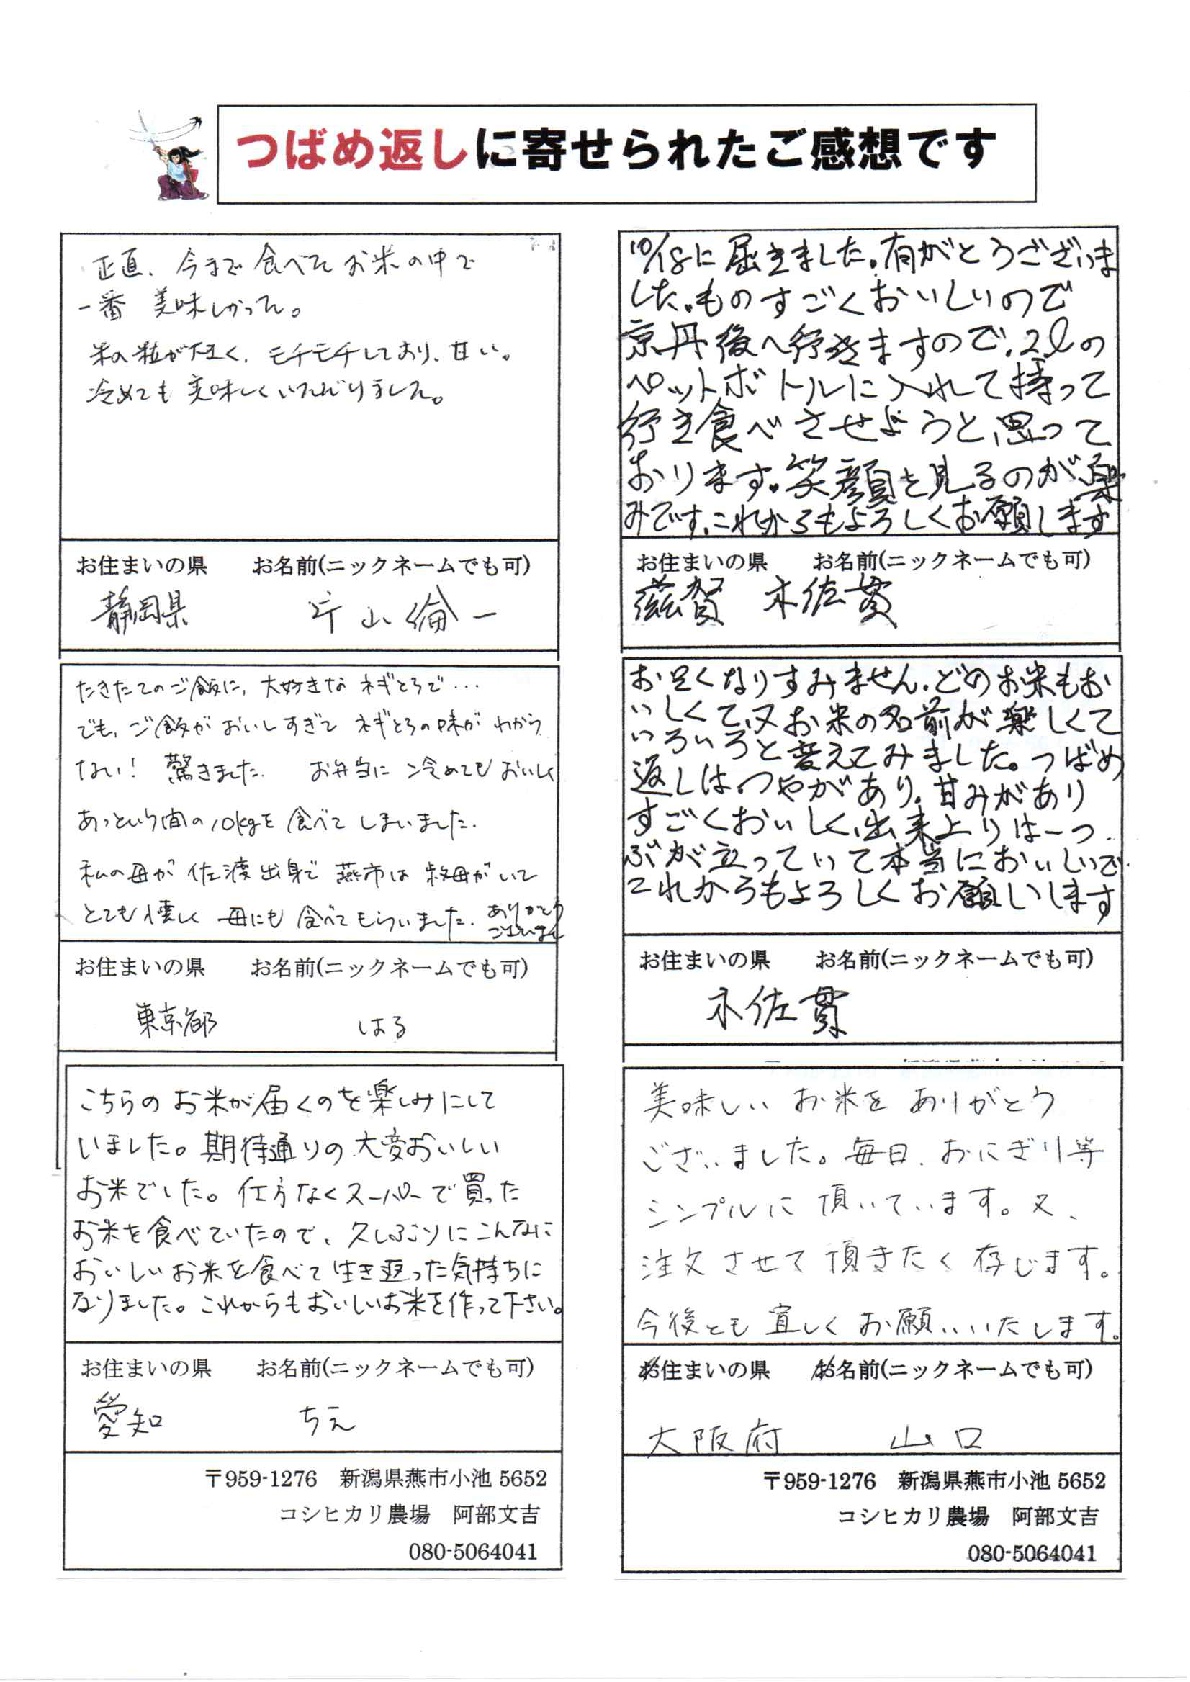 つばめ返しに寄せられたご感想です
正直、今まで食べてたお米の中で
一番 美味しかった。
米の粒が大きく、モチモチしており、甘い。
冷めても美味しくいただけました。
お住まいの県 お名前(ニックネームでも可)
静岡県 片山倫一
たきたてのご飯に、大好きな ネギとろで…
でも、ご飯が おいしすぎて ネギとろの味が わから
ない! 驚きました. お弁当に 冷めても おいしく
あっという間の10kgを食べて しまいました.
私の母が 佐渡出身で 燕市は 叔母がいて
とても懐しく 母にも 食べてもらいました. ありがとう
ございました
お住まいの県 お名前(ニックネームでも可)
東京都 はる
こちらの お米が届くのを楽しみにして
いました。期待通りの 大変おいしい
お米でした。仕方なくスーパーで買った
お米を食べていたので、久しぶりにこんなに
おいしいお米を食べて 生き返った気持ちに
なりました。これからもおいしいお米を作って下さい。
お住まいの県 お名前(ニックネームでも可)
愛知 ちえ
〒959-1276 新潟県燕市小池 5652
コシヒカリ農場 阿部文吉
080-5064041
10/18に届きました。有がとうございま
した。ものすごくおいしいので
京丹後へ行きますので、2lの
ペットボトルに入れて持って
行き食べさせようと思って
おります。笑顔を見るのが楽し
みです。これからもよろしくお願します
お住まいの県 お名前(ニックネームでも可)
滋賀 木佐貫
お∅くなりすみません. どのお米もお
いしくて、又お米の名前が楽しくて
いろいろと変えてみました。つばめ
返しはつやがあり、甘みがあり
すごくおいしく、出来上りは一つ
ぶが立っていて本当においしいで.
これからもよろしくお願いします
お住まいの県 お名前(ニックネームでも可)
木佐貫
美味しい お米を ありがとう
ございました。毎日、おにぎり等
シンプルに 頂いています。又、
注文させて 頂きたく 存じます。
今後とも 宜しく お願いいたします。
お住まいの県 お名前(ニックネームでも可)
大阪府 山口
〒959-1276 新潟県燕市小池 5652
コシヒカリ農場 阿部文吉
080-5064041